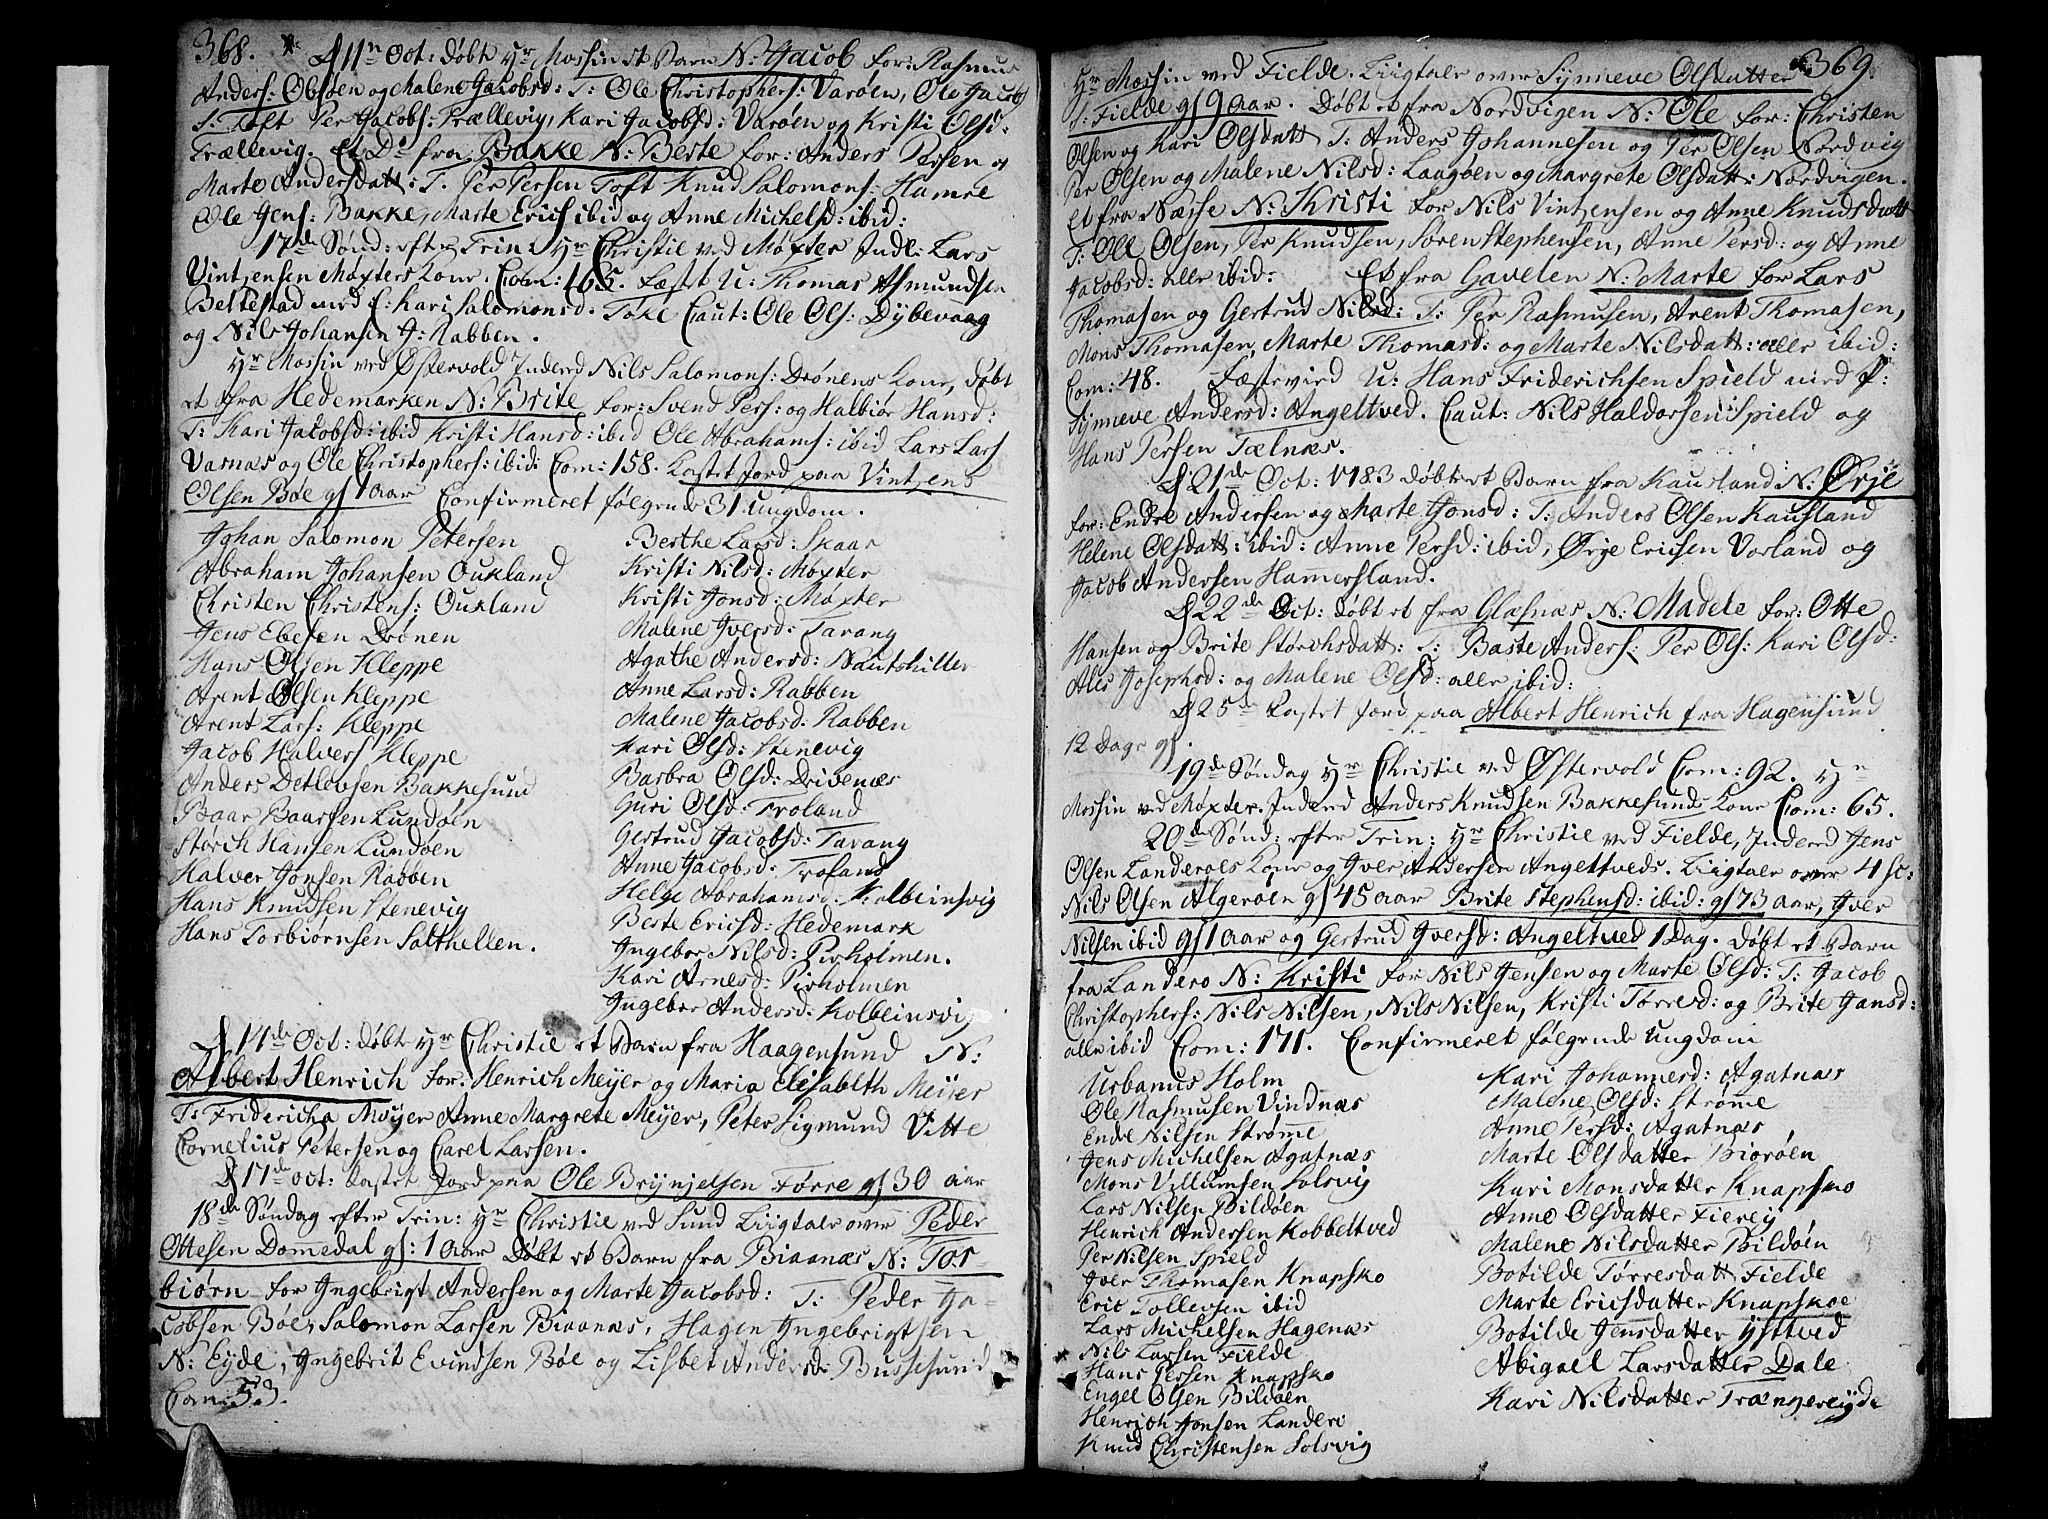 368.
d 11n Oct: døbt Hr Mossin et Barn N: Jacob for: Rasmus
Anders: Olsøen og Malene Jacobsd: T: Ole Christophers: Varøen, Ole Jacobs
S: Toft Per Jacobs: Trællevig, Kari Jacobsd: Varøen og Kristi Olsd:
Trællevig. Et Do fra Bakke N: Berte for: Anders Persen og
Marte Andersdatt: T: Per Persen Toft Knud Salomons: Hamre
Ole Jens: Bakke, Marte Erics ibid og Anne Michelsd: ibid:
17de Sønd: efter Trin: Hr Christie ved Møxter Indl: Lars
Vintzensen Møxters Kone. Com: 165. Fæst U: Thomas Asmundsen
Bekkestad med P: Kari Salomonsd. Toke Caut: Ole Ols: Dybevaag
og Nils Johansen H: Rabben.
Hr Mossin ved Østervold Indled Nils Salomons: Drønens Kone, døbt
et fra Hedemarken N: Brite for: Svend Pers: og Halbiør Hansd:
T: Kari Jacobsd: ibid Kristi Hansd: ibid Ole Abrahams: ibid Lars Lars
Varnæs og Ole Christophers: ibid: Com: 158. Kastet Jord paa Vintzens
Olsen Bøe gl 1 aar Confirmeret følgende 31 ungdom.
Johan Salomon Petersen
Abraham Johansen Oukland
Christen Christens: Oukland
Jens Ebesen Drønen
Hans Olsen Kleppe
Arent Olsen Kleppe
Arent Lars: Kleppe
Jacob Halvers Kleppe
Anders Detlevsen Bakkesund
Baar Baarsen Lundøen
Størch Hansen Lundøen
Halver Jonsen Rabben
Hans Knudsen Stenevig
Hans Torbiørnsen Salthellen.
Berthe Larsd: Skaar
Kristi Nilsd: Møxter
Kristi Jonsd: Møxter
Malene Iversd: Tarang
Agathe Andersd: Nautshiller
Anne Larsd: Rabben
Malene Jacobsd: Rabben
Kari Olsd: Stenevig
Barbra Olsd: Drivenæs
Guri Olsd: Troland
Gertrud Jacobsd: Tarang
Anne Jacobsd: Troland
Helge Abrahamsd. Kolbeinsvig
Berte Ericsd: Hedemark
Ingebor Nilsd: Pirholmen.
Kari Arnesd: Pirholmen
Ingebor Andersd: Kolbeinsvig
d 14de Oct: døbt Hr Christie et Barn fra Haagensund N:
Albert Henrich for: Henrich Meyer og Maria Elisabeth Meyer
T: Fridericha Meyer Anne Margrete Meyer, Peter Sigmund Vitte
Cornelius Petersen og Carel Larsen.
d 17de oct: Kastet Jord paa Ole Brynjelsen Førre gl 30 aar
18de Søndag efter Trin: Hr Christie ved Sund Liigtale over Peder
Ottesen Dommedal gl: 1 aar Døbt et Barn fra Biaanæs N: Tor-
biørn for Ingebrigt Andersen og Marte Jacobsd: T: Peder Ja-
cobsen Bøe, Salomon Larsen Biaanæs, Hagen Ingebrigtsen
N: Eyde, Ingebrit Evindsen Bøe og Lisbet Andersd: Bussesund
Com: 53.
369.
Hr Mossin ved Fielde. Liigtale over Synneve Olsdatter
S: Fielde gl 9 aar. Døbt et fra Nordvigen N: Ole for: Christen
Olsen og Kari Olsdatt T: Anders Johannesen og Per Olsen Nordvig
Per Olsen og Malene Nilsd: Laagøen og Margrete Olsdatt: Nordvigen.
Et fra Næsse N: Kristi for Nils Vintzensen og Anne Knudsdatt
T: Ole Olsen, Per Knudsen, Søren Stephensen, Anne Persd: og Anne
Jacobsd: alle ibid: Et fra Gavelen N: Marte for Lars
Thomasen og Gertrud Nilsd: T: Per Rasmusen, Arent Thomasen,
Mons Thomasen, Marte Thomasd: og Marte Nilsdatt: alle ibid:
Com: 48. Fæstevied U: Hans Friderichsen Spield med P:
Synneve Andersd: Angeltved. Caut: Nils Haldorsen Spield og
Hans Persen Tælnæs.
d 21de Oct: 1783 døbt et Barn fra Kausland N: Ørje
for: Endre Andersen og Marte Jonsd: T: Anders Olsen Kausland
Helene Olsdatt: ibid: Anne Persd: ibid, Ørje Ericsen Vorland og
Jacob Andersen Hammersland.
d 22de Oct: døbt et fra Glasnæs N: Madele for: Otte
Hansen og Brite Størchsdatt: T: Baste Anders: Per Ols: Kari Olsd:
Ales Josephsd: og Malene Olsd: alle ibid:
d 25de Kastet Jord paa Albert Henrich fra Hagensund
12 Dage gl.
19de Søndag Hr Christie ved Østervold Com: 92. Hr
Mossin ved Møxter. Indled Anders Knudsen Bakkesunds Kone Com: 65.
20de Sønd: efter Trin: Hr Christie ved Fielde, Indled Jens
Olsen Landeroes Kone og Iver Andersen Angeltveds. Liigtale over 4 sc:
Nils Olsen Algerøen gl 45 aar Brite Stephensd: ibid: gl 73 aar, Iver
Nilsen ibid gl 1 aar og Gertrud Iversd: Angeltved 1 Dag. Døbt et Barn
fra Landero N: Kristi for Nils Jensen og Marte Olsd: T: Jacob
Christophers: Nils Nilsen, Nils Nilsen, Kristi Tørresd: og Brite Jansd:
alle ibid Com: 171. Confirmeret følgende ungdom
Urbanus Holm
Ole Rasmusen Vindnæs
Endre Nilsen Strømme
Jens Michelsen Agatnæs
Mons Villumsen Solsvig
Lars Nilsen Bildøen
Henrich Andersen Kobbeltved
Per Nilsen Spield
Iver Thomasen Knapsko
Eric Tollevsen ibid
Lars Michelsen Hagenæs
Nils Larsen Fielde
Hans Persen Knapsko
Engel Olsen Bildøen
Henrich Jonsen Landero
Knud Christensen Solsvig
Kari Johannesd: Agatnæs
Malene Olsd: Strømme
Anne Persd: Agatnæs
Marte Olsdatter Biorøen
Kari Monsdatter Knapsko
Anne Olsdatter Fierej
Malene Nilsdatter Bildøen
Botilde Tørresdatt Fielde
Marte Ericsdatter Knapskoe
Botilde Jensdatter Ysttved
Abigael Larsdatter Dale
Kari Nilsdatter Trængereyde